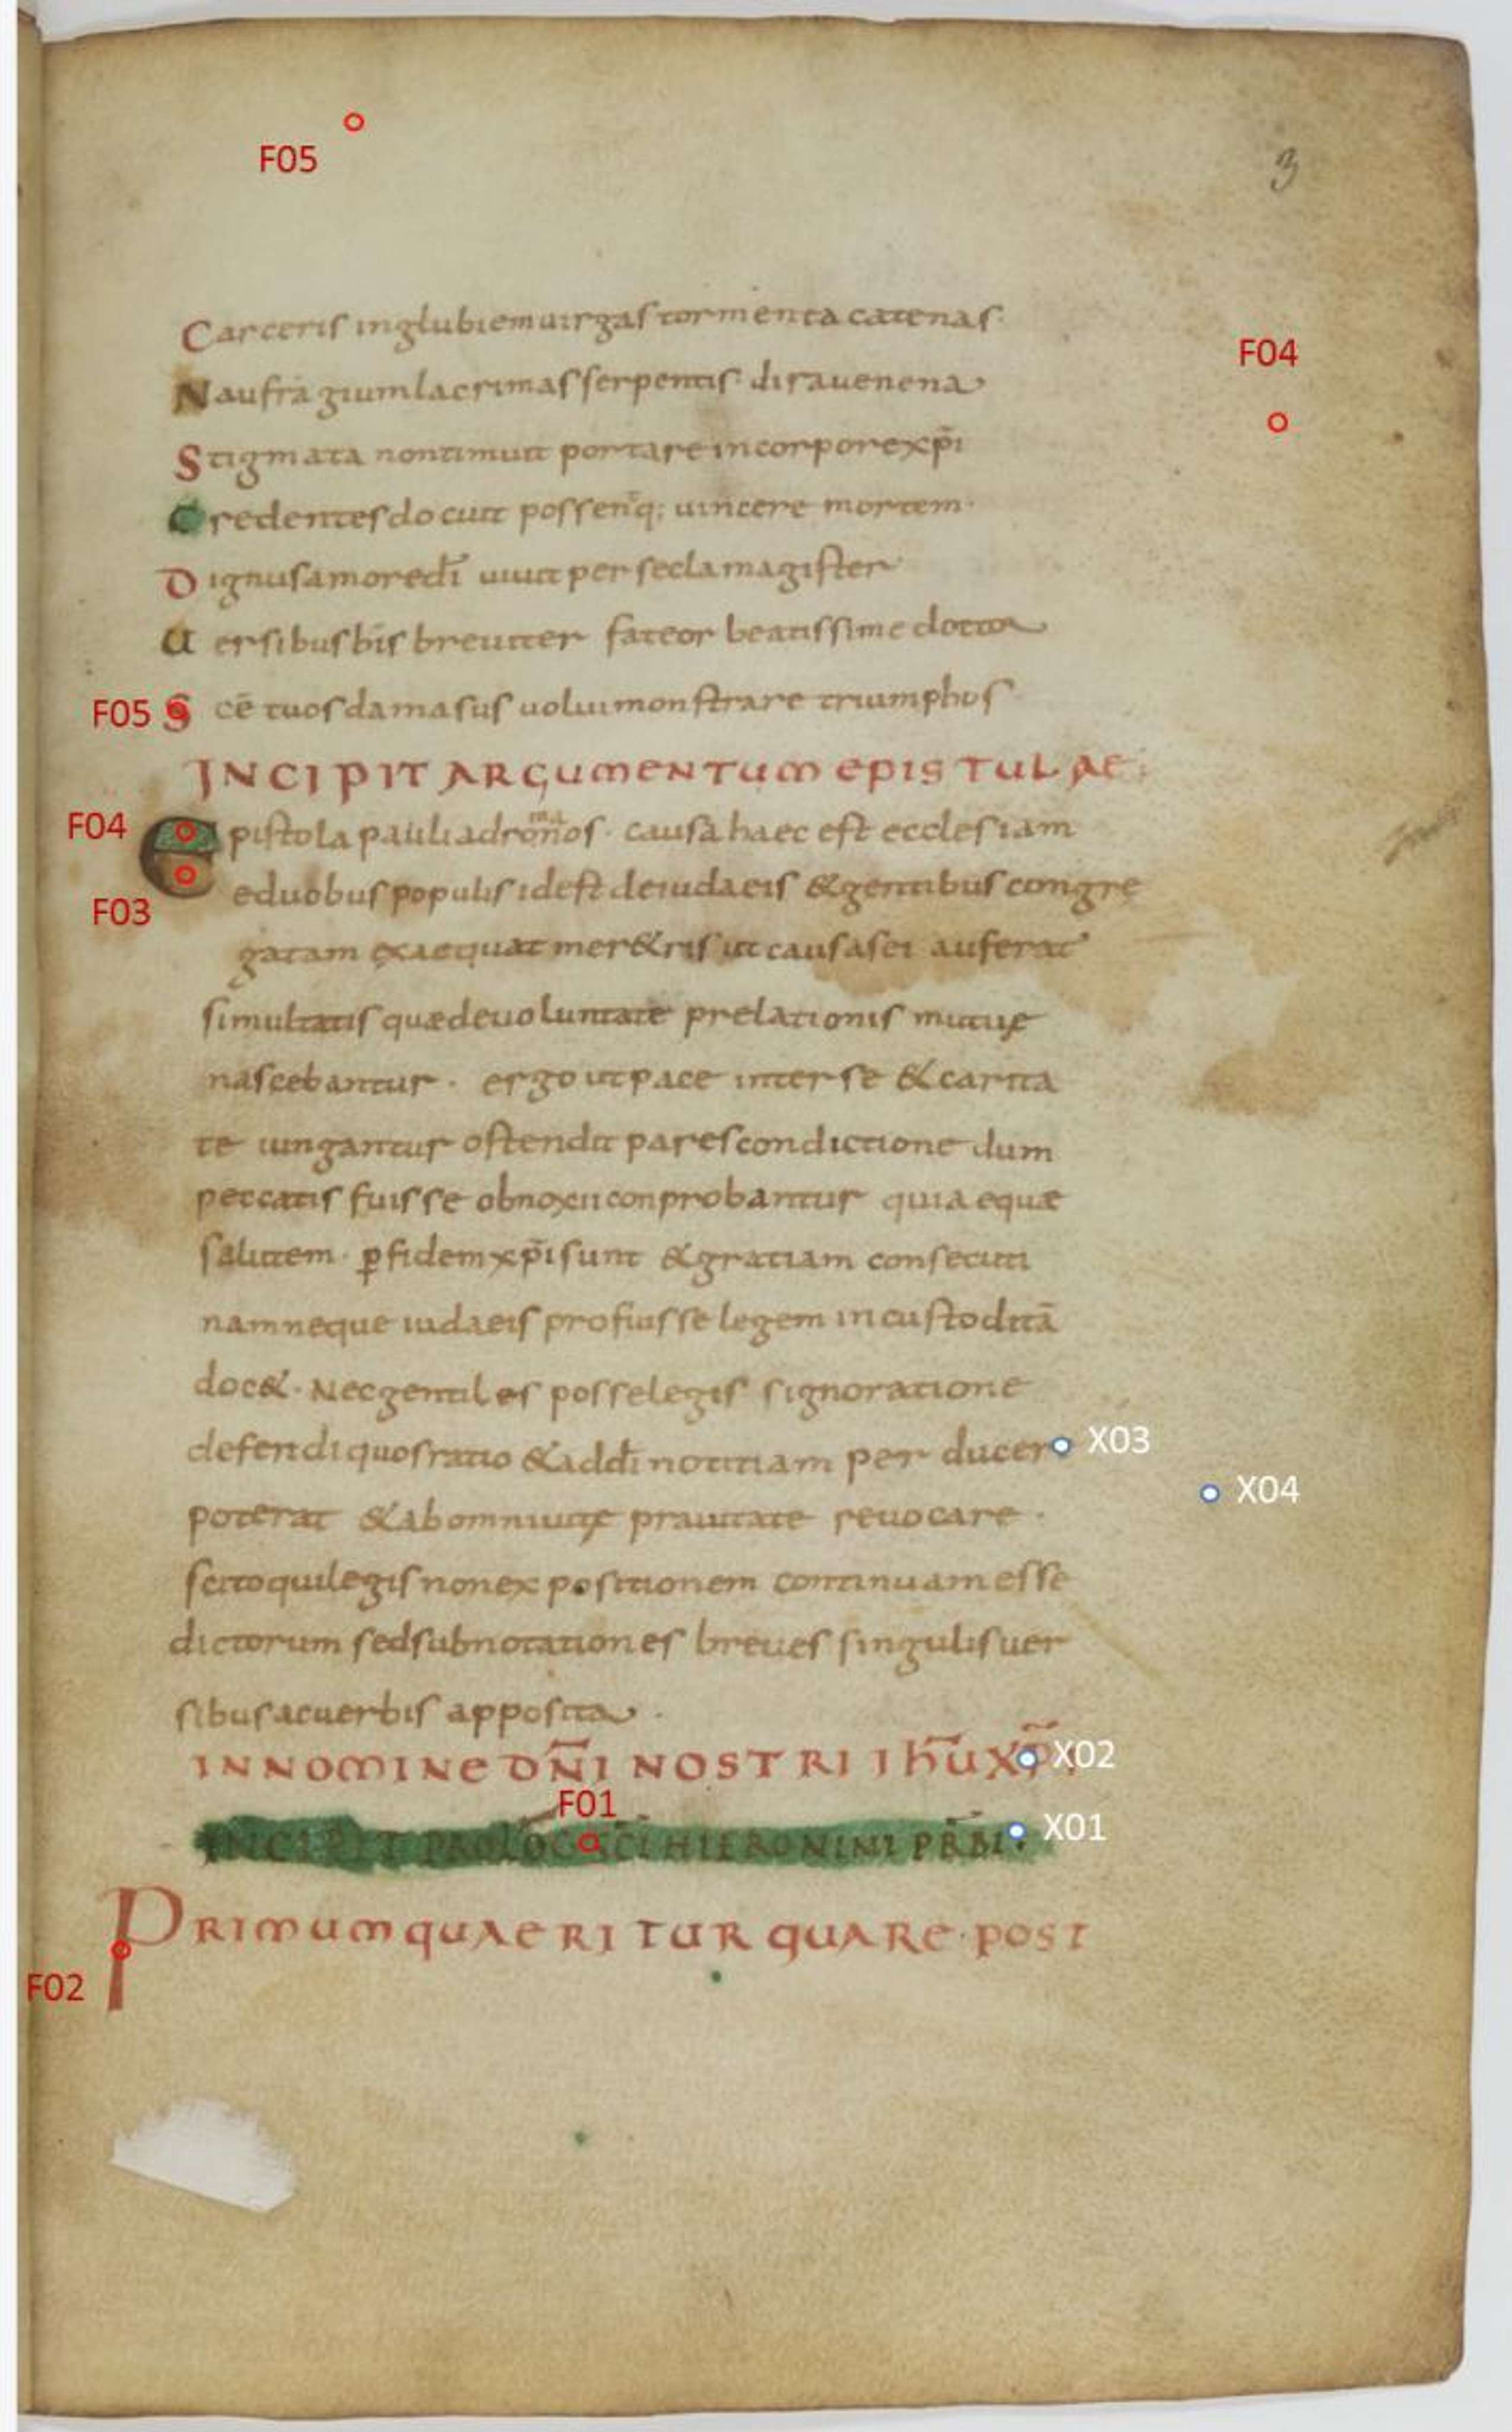 F05
3
Carceris inglubiem uirgas tormenta catenas·
F04
Naufragium lacrimas serpentis· dira uenena
Stigmata non timuit portare in corpore xp̄i
Credentes docuit possenq; uincere mortem·
Dignus amore dī uiuit per secla magister
Uersibus bis breuiter fateor beatissime doctor
F05 Scē tuos damasus uolui monstrare triumphos·
INCIPIT ARGUMENTUM EPISTULAE:
F04 Epistola pauli ad romanos· causa haec est ecclesiam
F03 e duobus populis id est de iudaeis & gentibus congre
gatam exaequat mer&ris ut causas ei auferat
simultatis quae de uoluntate prelationis mutuę
nascebantur· ergo ut pace inter se & carita
te iungantur ostendit pares condictione dum
peccatis fuisse obnoxii conprobantur quia equae
salutem· p fidem xp̄i sunt & gratiam consecuti
nam neque iudaeis profuisse legem incustoditā
doc&· Nec gentiles posse legis signoratione
defendi quos ratio & ad dī notitiam per ducer X03
X04
poterat & ab omni uitę prauitate reuocare·
scito qui legis non expositionem continuam esse
dictorum sed subnotationes breues singulis uer
sibus ac uerbis apposita·
IN NOMINE DN̄I NOSTRI IHŪ XP̄I X02
F01
INCIPIT PROLOG SCI HIERONIMI PRBI: X01
PRIMUM QUAERITUR QUARE·POST
F02